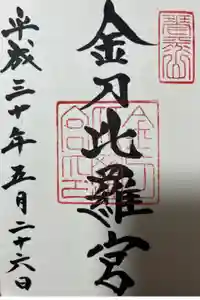 金刀比羅宮
平成三十年五月二十六日